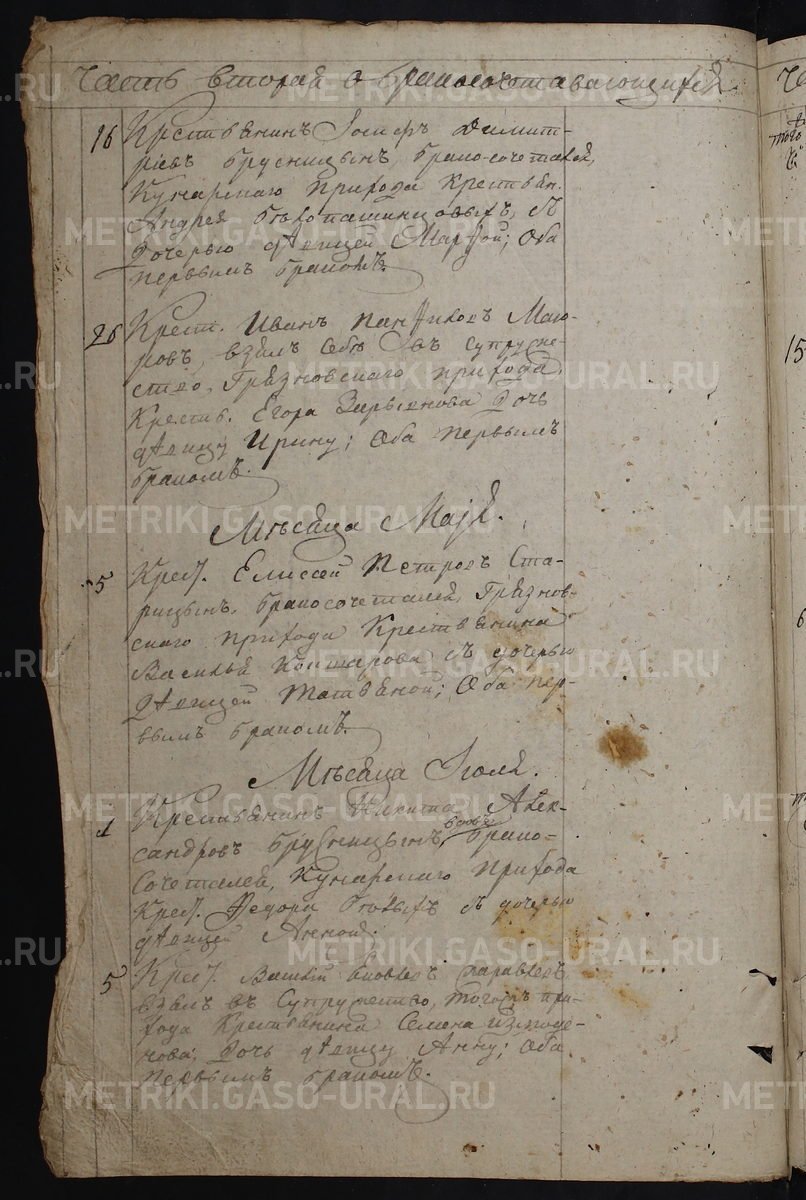 Часть вторая о бракосочетавающихся.
16 Крестьянинъ Іосифъ Димит-
рievъ Брусницынъ, бракосочетался,
Кунарскаго прихода крестьян.
Андрея съ
дочерью дѣвицей Марѳой; Оба
первымъ бракомъ.
26 Крест. Иванъ Панфиловъ Маю-
ровъ, взялъ себѣ въ супруже-
ство, Грязновскаго прихода,
Крестьян. Егора дочь
дѣвицу Ирину; Оба первымъ
бракомъ.
Мѣсяца Маія.
5 Крест. Елисей Петровъ Ста-
рицынъ, бракосочетался, Грязнов-
скаго прихода Крестьянина
Василья съ дочерью
дѣвицей Татьяной; Оба пер-
вымъ бракомъ.
Мѣсяца Іюля.
1 Крестьянинъ Никита Алек-
сандровъ Брусницынъ, вдовъ брако-
сочетался, Кунарскаго прихода
Крест. Федора съ дочерью
дѣвицей Анной;
5 Крест. Василій
взялъ въ супружество, тогожъ при-
хода Крестьянина Семена Измоде-
нова, дочь дѣвицу Анну; Оба
первымъ бракомъ.
METRIKI.GASO-URAL.RU